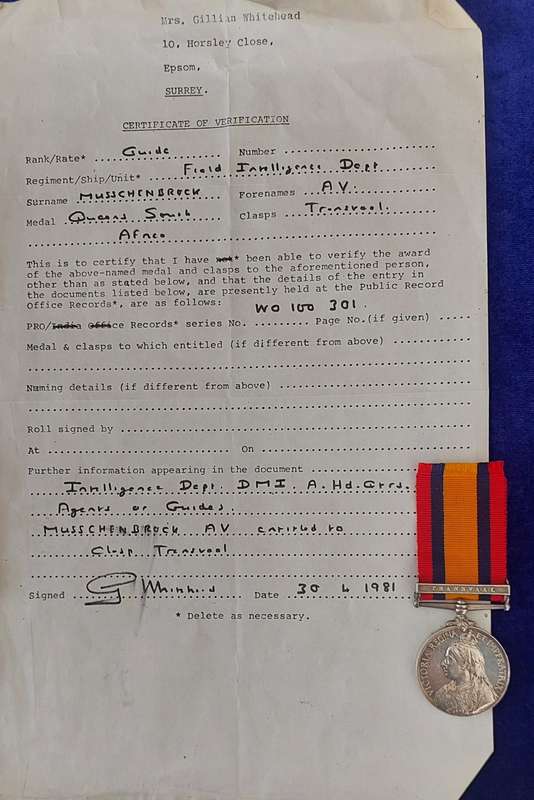 Mrs. Gillian Whitehead
10, Horsley Close,
Epsom,
SURREY.
CERTIFICATE OF VERIFICATION
Rank/Rate* .... Guide .... Number ....
Regiment/Ship/Unit* .... Field Intelligence Dept
Surname MUSSCHENBROCK Forenames .. A.V. ....
Medal Queens South Clasps .. Transvaal. ..
.... Africa ....
This is to certify that I have not* been able to verify the award
of the above-named medal and clasps to the aforementioned person,
other than as stated below, and that the details of the entry in
the documents listed below, are presently held at the Public Record
Office Records*, are as follows: WO 100 301.
PRO/India Office Records* series No. ........ Page No.(if given) .....
Medal & clasps to which entitled (if different from above) ........
Naming details (if different from above) ........
Roll signed by ........
At ........ On ........
Further information appearing in the document ........
Intelligence Dept DMI A. Hd. Qrrs.
Agents or Guides.
MUSSCHENBROCK AV entitled to
Clasp Transvaal
Signed .... G Whitehead .... Date .. 30 4 1981
* Delete as necessary.
TRANSVAAL
VICTORIA REGINA ET IMPERATRIX